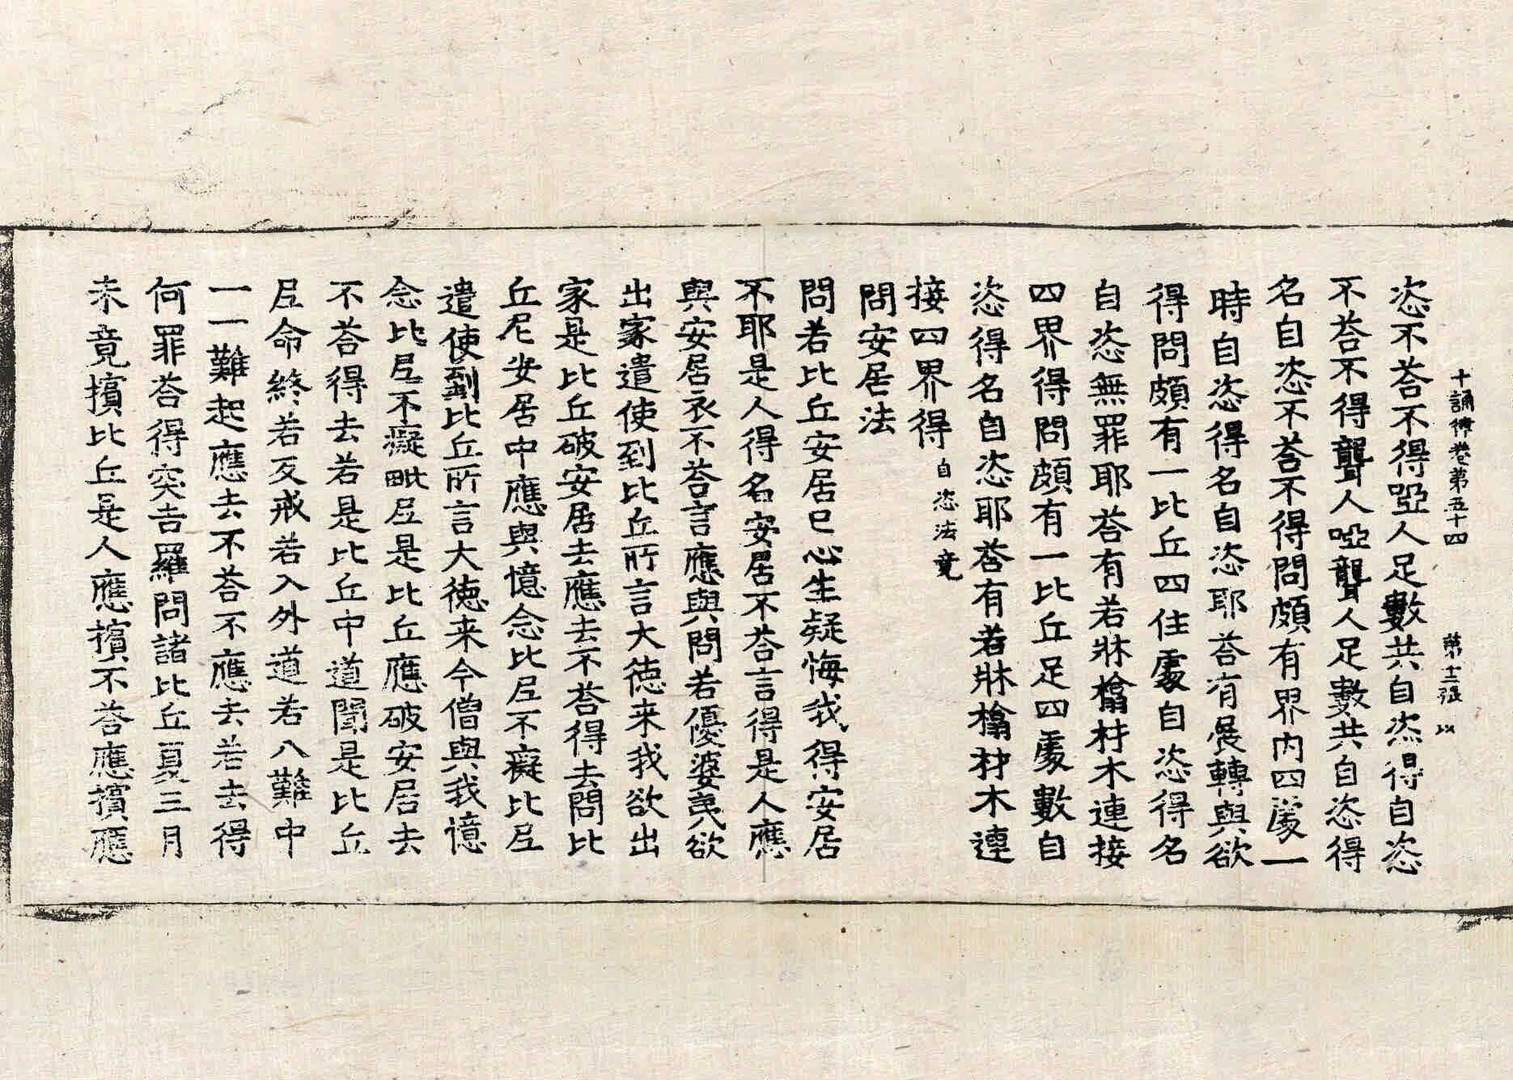 十誦律卷第五十四　第十二張　以
恣不荅不得啞人足數共自恣得自恣
不荅不得聾人啞聾人足數共自恣得
名自恣不荅不得問頗有界內四處一
時自恣得名自恣耶荅有展轉與欲
得問頗有一比丘四住處自恣得名
自恣無罪耶荅有若牀榻材木連接
四界得問頗有一比丘足四處數自
恣得名自恣耶荅有若牀榻材木連
接四界得自恣法竟
問安居法
問若比丘安居已心生疑悔我得安居
不耶是人得名安居不荅言得是人應
與安居衣不荅言應與問若優婆夷欲
出家遣使到比丘所言大德来我欲出
家是比丘破安居去應去不荅得去問比
丘尼安居中應與憶念比𡰱不癡比𡰱
遣使到比丘所言大德来今僧與我憶
念比𡰱不癡毗𡰱是比丘應破安居去
不荅得去若是比丘中道聞是比丘
𡰱命終若反戒若入外道若八難中
一一難起應去不荅不應去若去得
何罪荅得突吉羅問諸比丘夏三月
未竟擯比丘是人應擯不荅應擯應